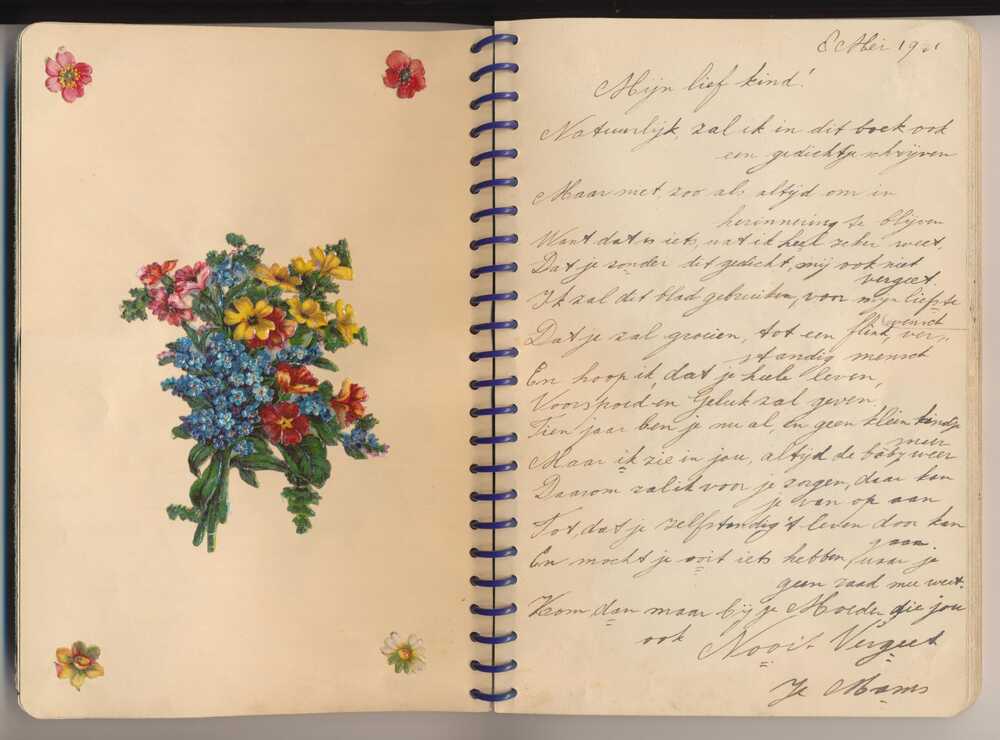 8 Mei 19
Mijn lief kind!
Natuurlijk, zal ik in dit boek ook
een gedichtje schrijven
Maar niet, zoo als altijd om in
herinnering te blijven
Want dat is iets, wat ik heel zeker weet,
Dat je zonder dit gedicht, mij ook niet
vergeet.
Ik zal dit blad gebruiken, voor mijn liefste
wensch
Dat je zal groeien, tot een flink, ver-,
standig mensch
En hoop ik, dat je hiele leven,
Voorspoed en Geluk zal geven,
Tien jaar ben je nu al, en geen klein kindje
meer
Maar ik zie in jou, altijd de baby weer
Daarom zal ik voor je zorgen, daar kan
je van op aan
Tot, dat je zelfstandig 't leven door kan
gaan.
En mocht je ooit iets hebben, waar je
geen raad mee weet.
Kom dan maar bij je Moeder die jou
ook Nooit Vergeet
Je Mams